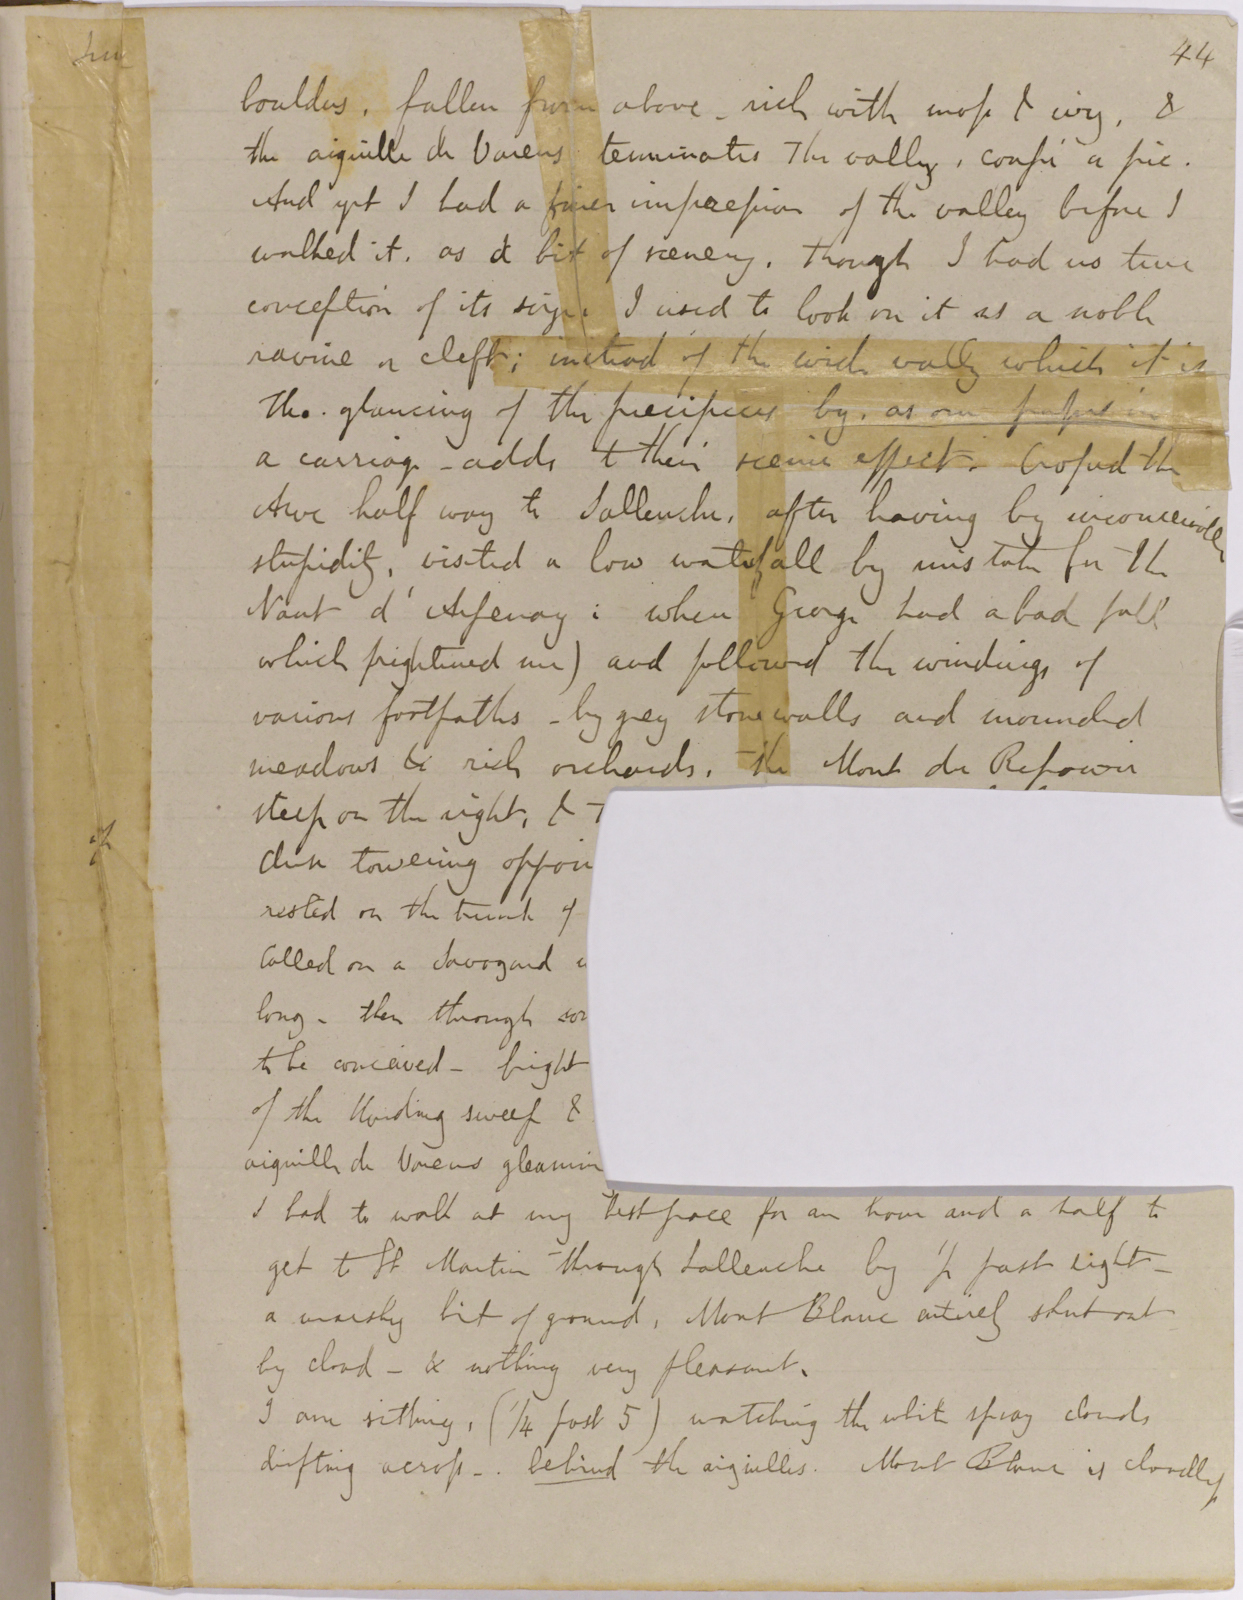 44
boulders, fallen from above - rich with moss & ivy, &
the aiguille de Varens terminates the valley, coupé a pic.
And yet I had a finer impression of the valley before I
walked it, as a bit of scenery, though I had no true
conception of its size. I used to look on it as a noble
ravine or cleft; instead of the wide valley which it is
The glancing of the precipices by, as one passes in
a carriage - adds to their scenic effect. Crossed the
Arve half way to Sallenche, after having by inconceivable
stupidity, visited a low waterfall by mistake for the
Nant d'Arpenay: when George had a bad fall
which frightened me) and followed the windings of
various footpaths - by grey stone walls and mounded
meadows & rich orchards, the Mont de Reposoir
steep on the right, &
towering
rested on the trunk of
called on a Savoyard
long - then through
to be conceived - bright
of the sweep &
aiguille de Varens
I had to walk at my best pace for an hour and a half to
get to St Martin through Sallenche by 1/2 past eight -
a marshy bit of ground, Mont Blanc entirely shut out
by cloud - & nothing very pleasant.
I am sitting, (1/4 past 5) watching the white spray clouds
drifting across - . behind the aiguilles. Mont Blanc is cloudless